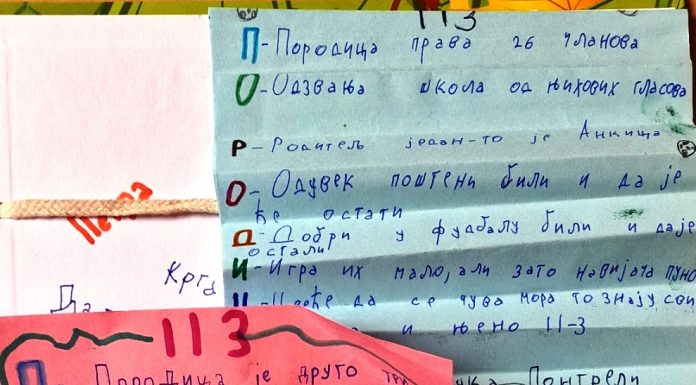 113
П-Породица права 26 чланова
О-Одзвања школа од њихових гласова
Р-Родитељ један-то је Анкица
О-Одувек поштени били и даје
ће остати
Д-Добри у фудбалу били и даје
остали
И-Игра их мало, али зато навијача пуно
да се чува мора то знају сви
и њено 11-3
Петра
Крга
Да-
113
П-Породица је друго три